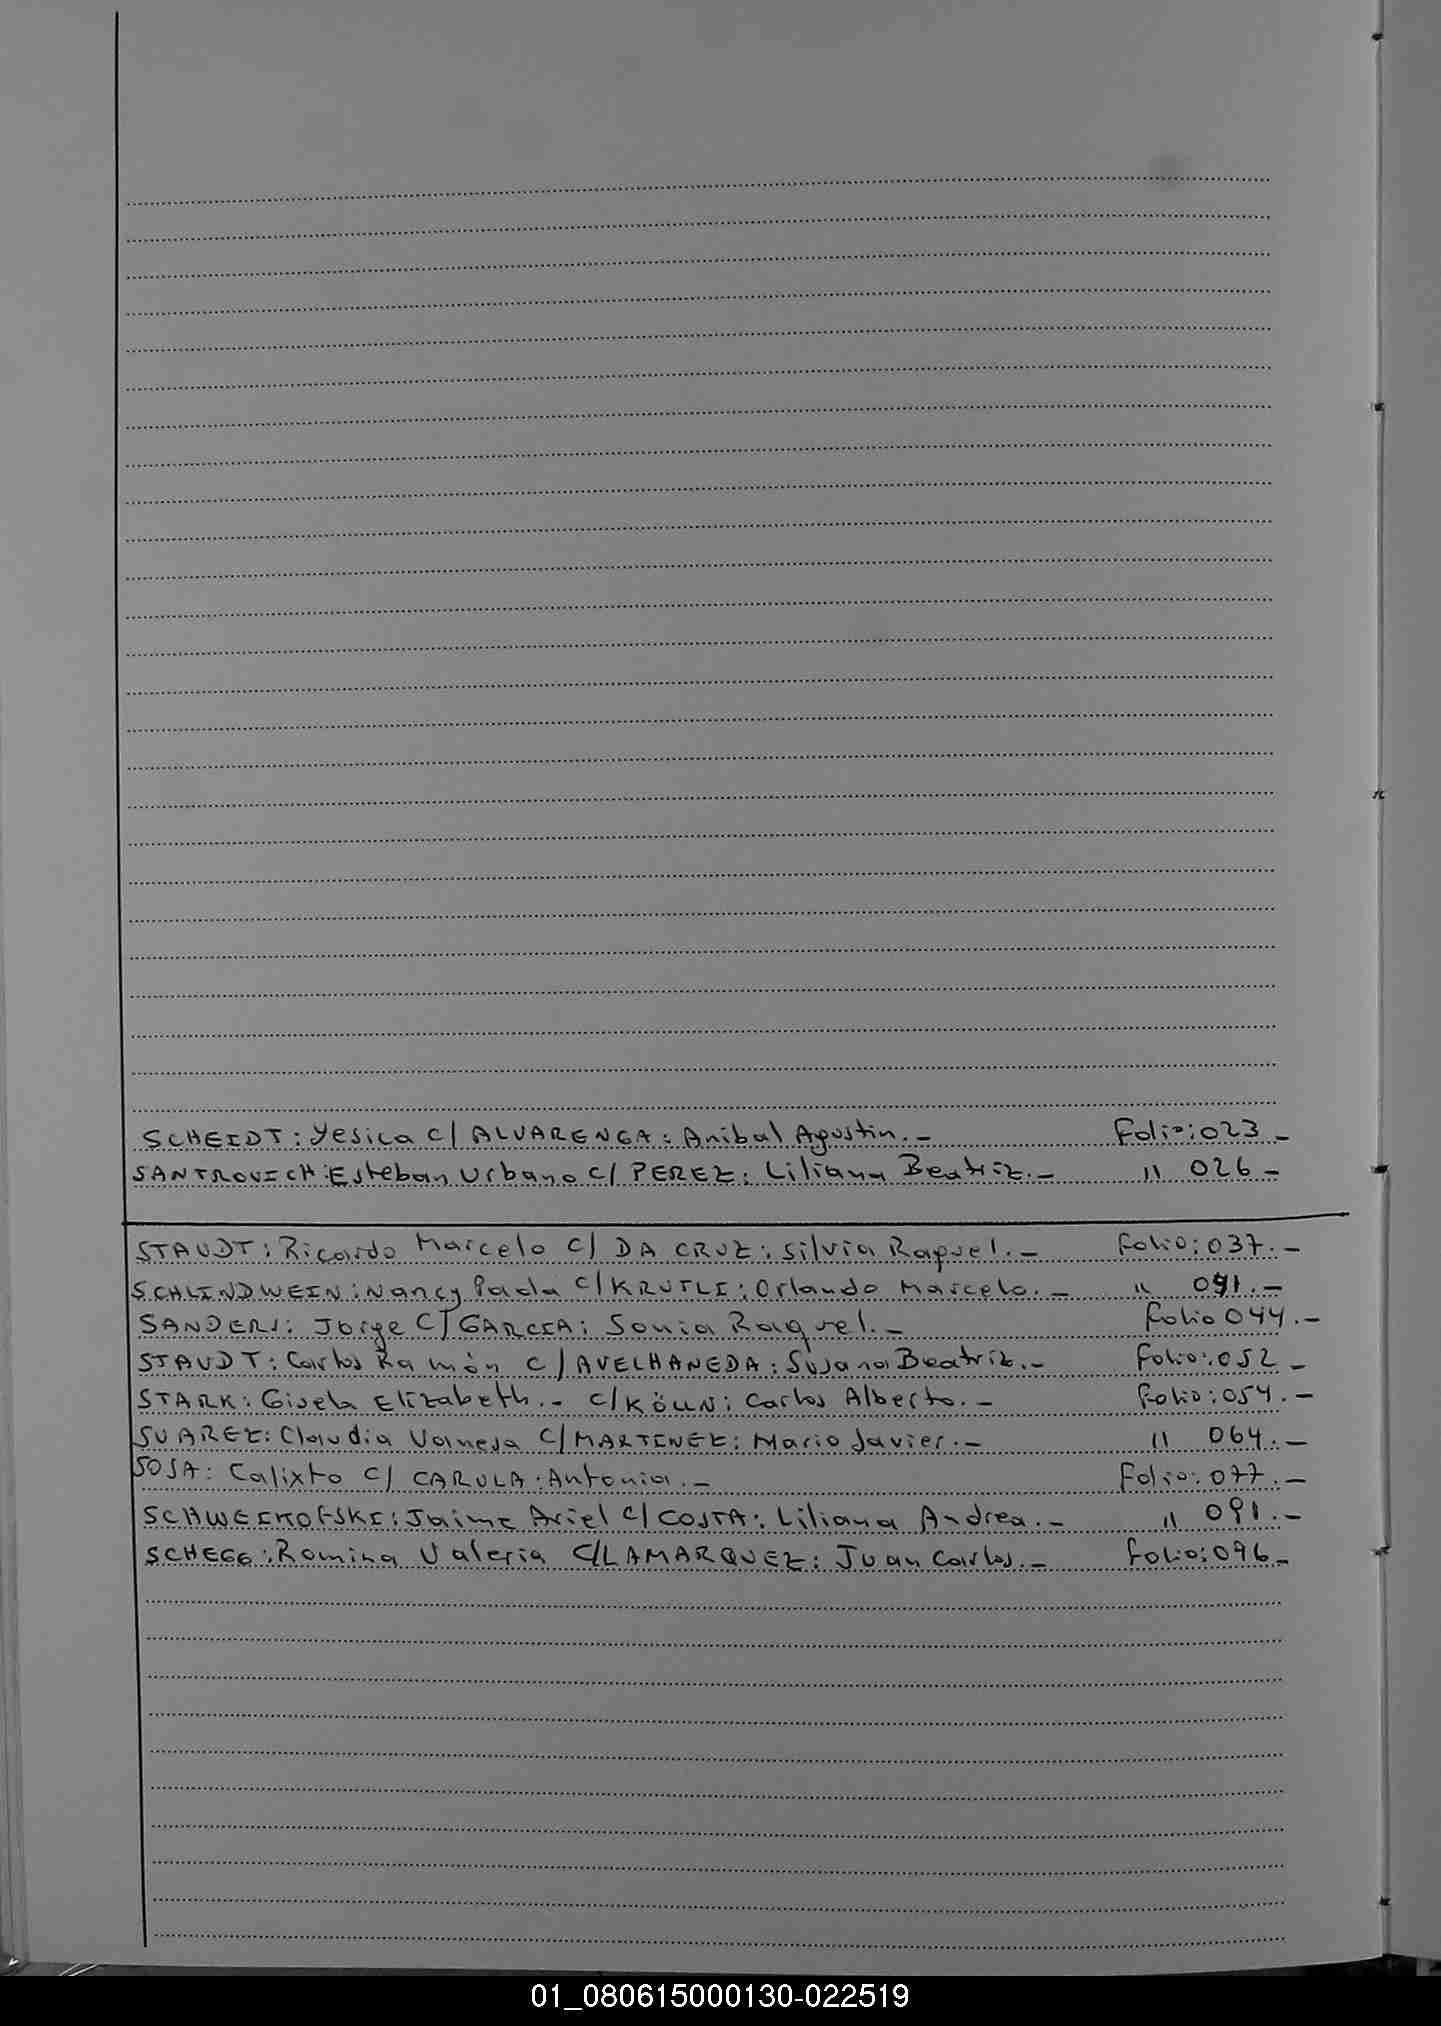 SCHEIDT: Yesica c/ ALVARENGA: Anibal Agustin.- Folio: 023.-
SANTROVICH: Esteban Urbano c/ PEREZ: Liliana Beatriz.- " 026-
STAUDT: Ricardo Marcelo c/ DA CRUZ: Silvia Raquel.- Folio: 037.-
SCHLINDWEIN: Nancy Paola c/ KRUTLI: Orlando Marcelo.- " 041.-
SANDERS: Jorge c/ GARCIA: Sonia Raquel.- Folio 044.-
STAUDT: Carlos Ramón c/ AVELHANEDA: Susana Beatriz.- Folio: 052-
STARK: Gisela Elizabeth.- c/ KÖLLN: Carlos Alberto.- Folio: 054.-
SUAREZ: Claudia Vanesa c/ MARTINEZ: Mario Javier.- " 064.-
SOSA: Calixto c/ CARULA: Antonia.- Folio: 077.-
SCHWEIKOFSKI: Jaime Ariel c/ COSTA: Liliana Andrea.- " 091.-
SCHEGG: Romina Valeria c/ LAMARQUEZ: Juan Carlos.- Folio: 096-
01_080615000130-022519